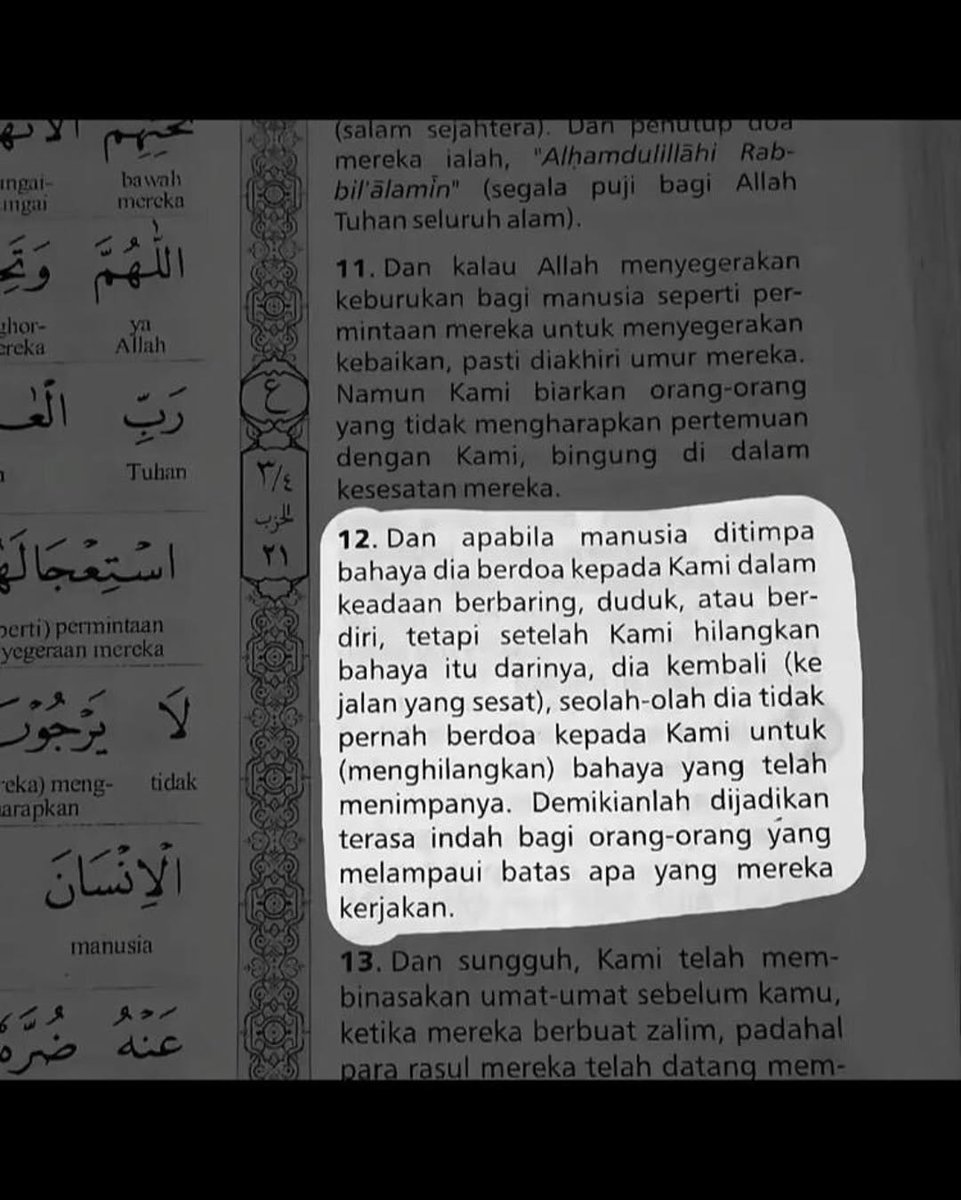 bawah
ungai-
mereka
ungai
اللّٰهُمَّ
ya
Allah
رَبِّ
Tuhan
permintaan
yegeraan mereka
لَا
يَرْجُوْنَ
tidak
(mereka) meng-
arapkan
الْاِنْسَانَ
manusia
عَنْهُ ضُرَّهٗ
ع
٣/٤
الحزب
٢١
(salam sejahtera). Dan penutup doa
mereka ialah, "Alḥamdulillāhi Rab-
bil'ālamīn" (segala puji bagi Allah
Tuhan seluruh alam).
11. Dan kalau Allah menyegerakan
keburukan bagi manusia seperti per-
mintaan mereka untuk menyegerakan
kebaikan, pasti diakhiri umur mereka.
Namun Kami biarkan orang-orang
yang tidak mengharapkan pertemuan
dengan Kami, bingung di dalam
kesesatan mereka.
12. Dan apabila manusia ditimpa
bahaya dia berdoa kepada Kami dalam
keadaan berbaring, duduk, atau ber-
diri, tetapi setelah Kami hilangkan
bahaya itu darinya, dia kembali (ke
jalan yang sesat), seolah-olah dia tidak
pernah berdoa kepada Kami untuk
(menghilangkan) bahaya yang telah
menimpanya. Demikianlah dijadikan
terasa indah bagi orang-orang yang
melampaui batas apa yang mereka
kerjakan.
13. Dan sungguh, Kami telah mem-
binasakan umat-umat sebelum kamu,
ketika mereka berbuat zalim, padahal
para rasul mereka telah datang mem-